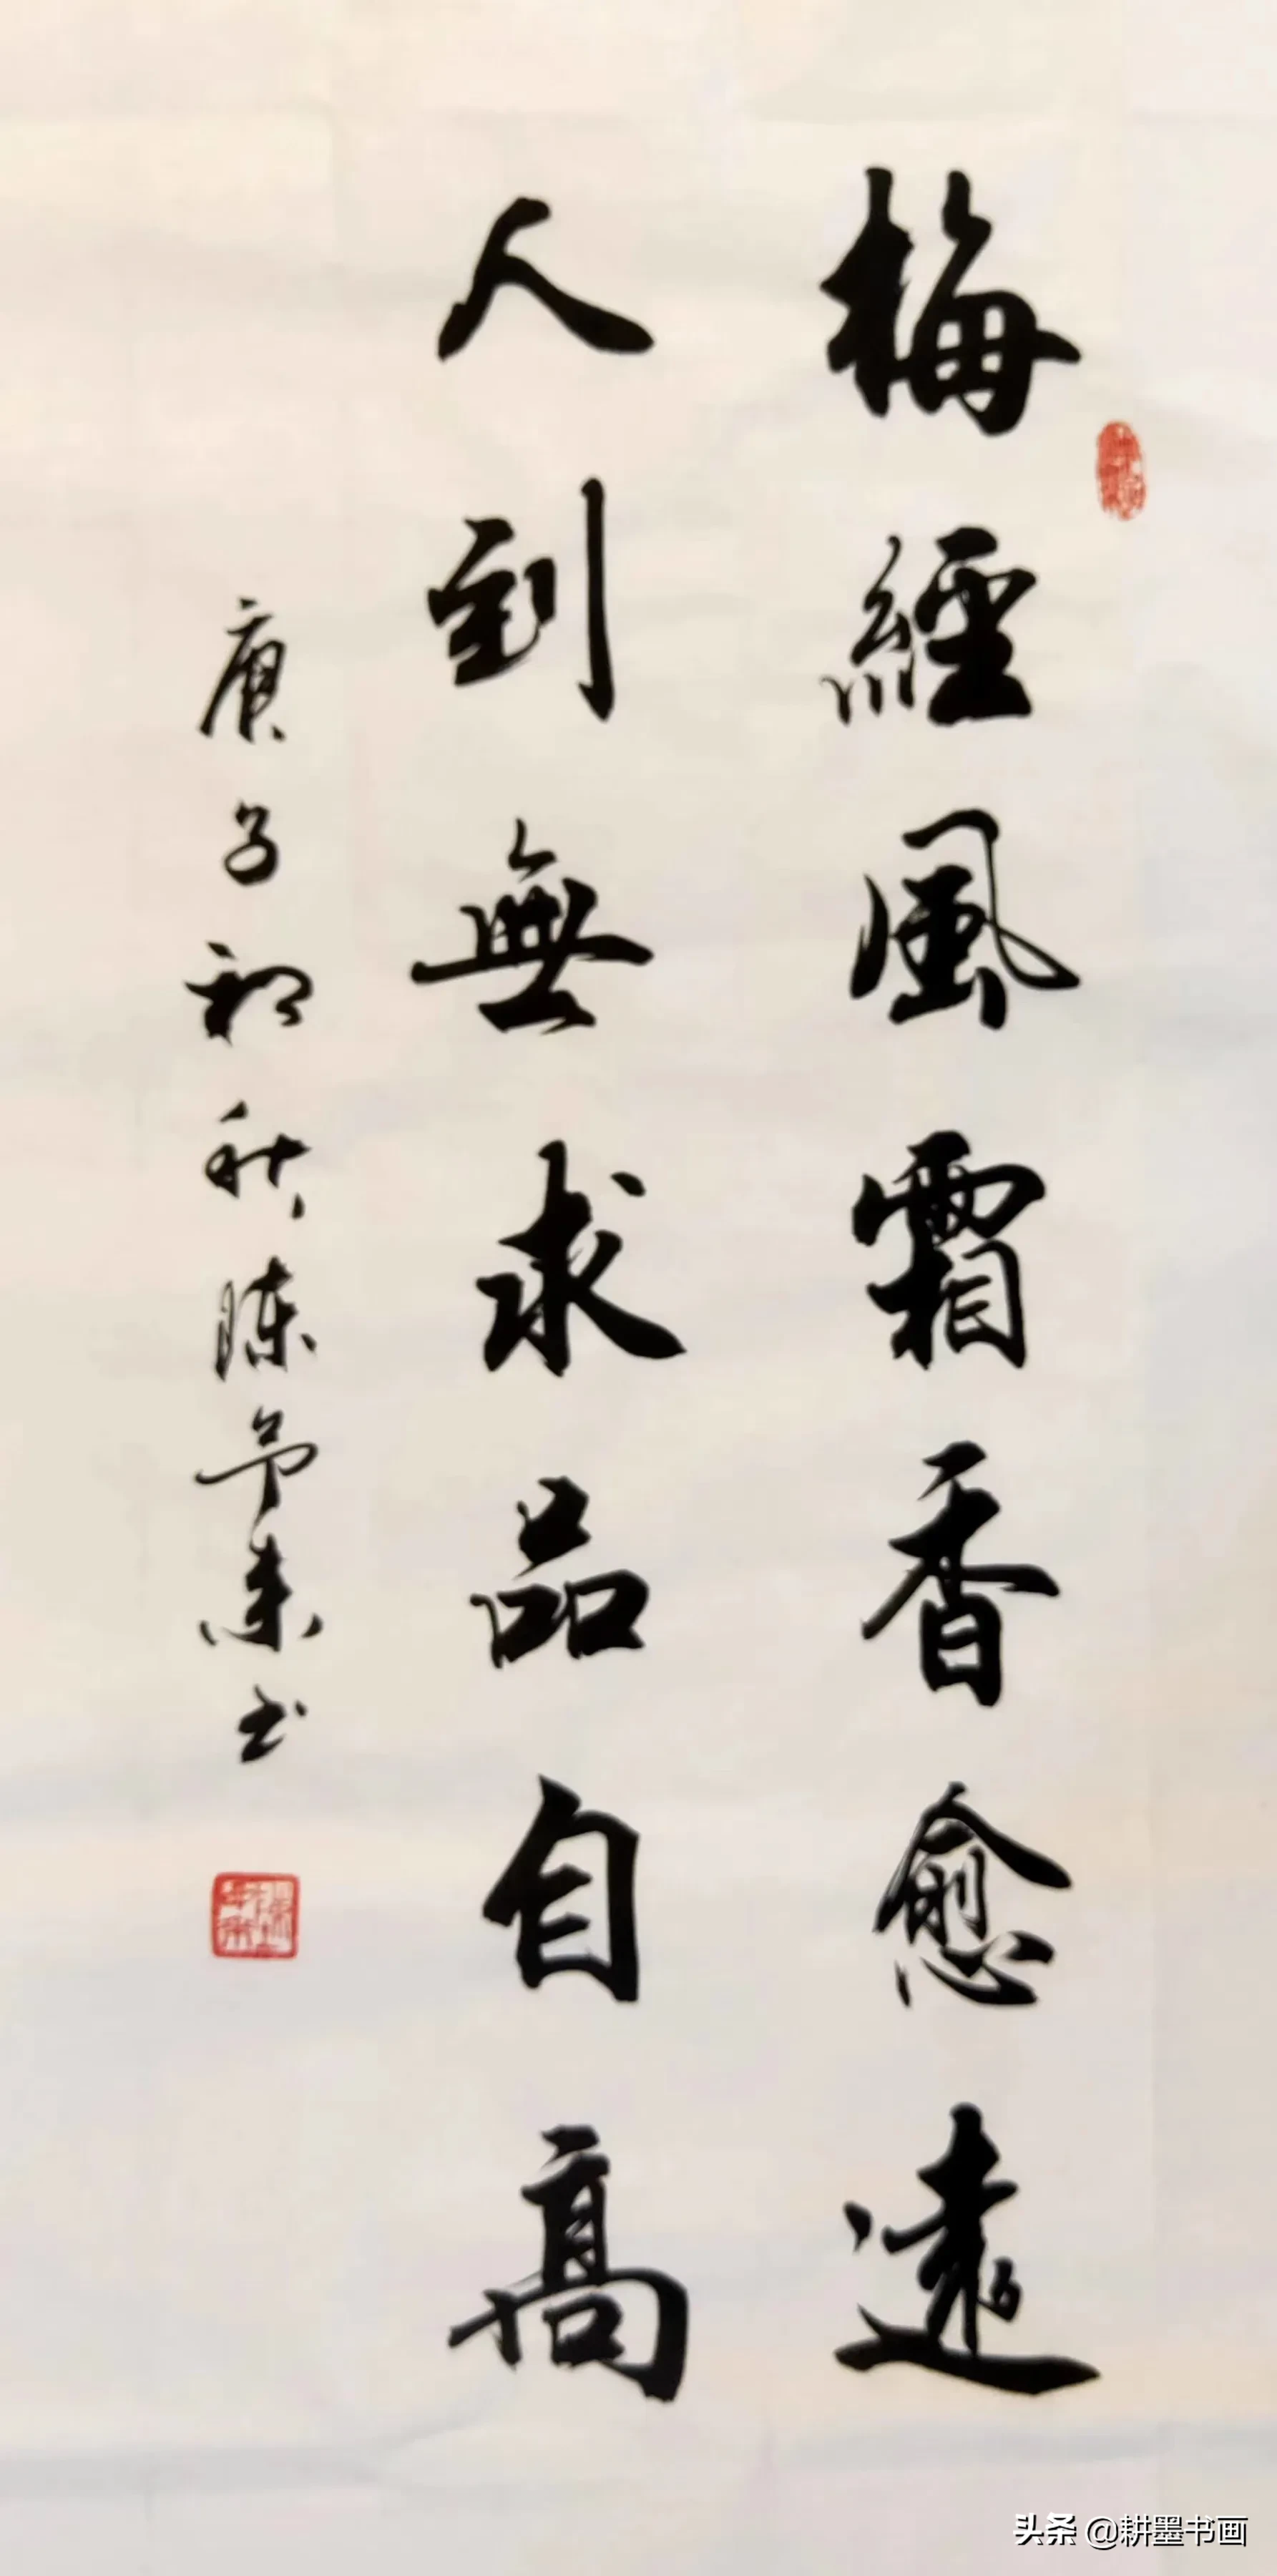 梅經風霜香愈遠
人到無求品自高
庚子初秋陳予来书
头条 @耕墨书画